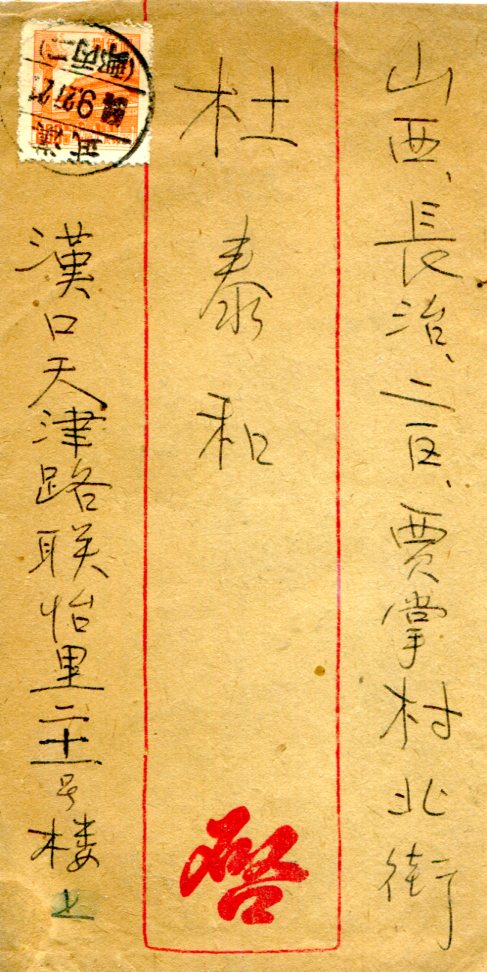 山西、長治、二区、贾掌村北街
杜泰和
啓
漢口天津路联怡里二十一号楼上
武漢
9.27.2